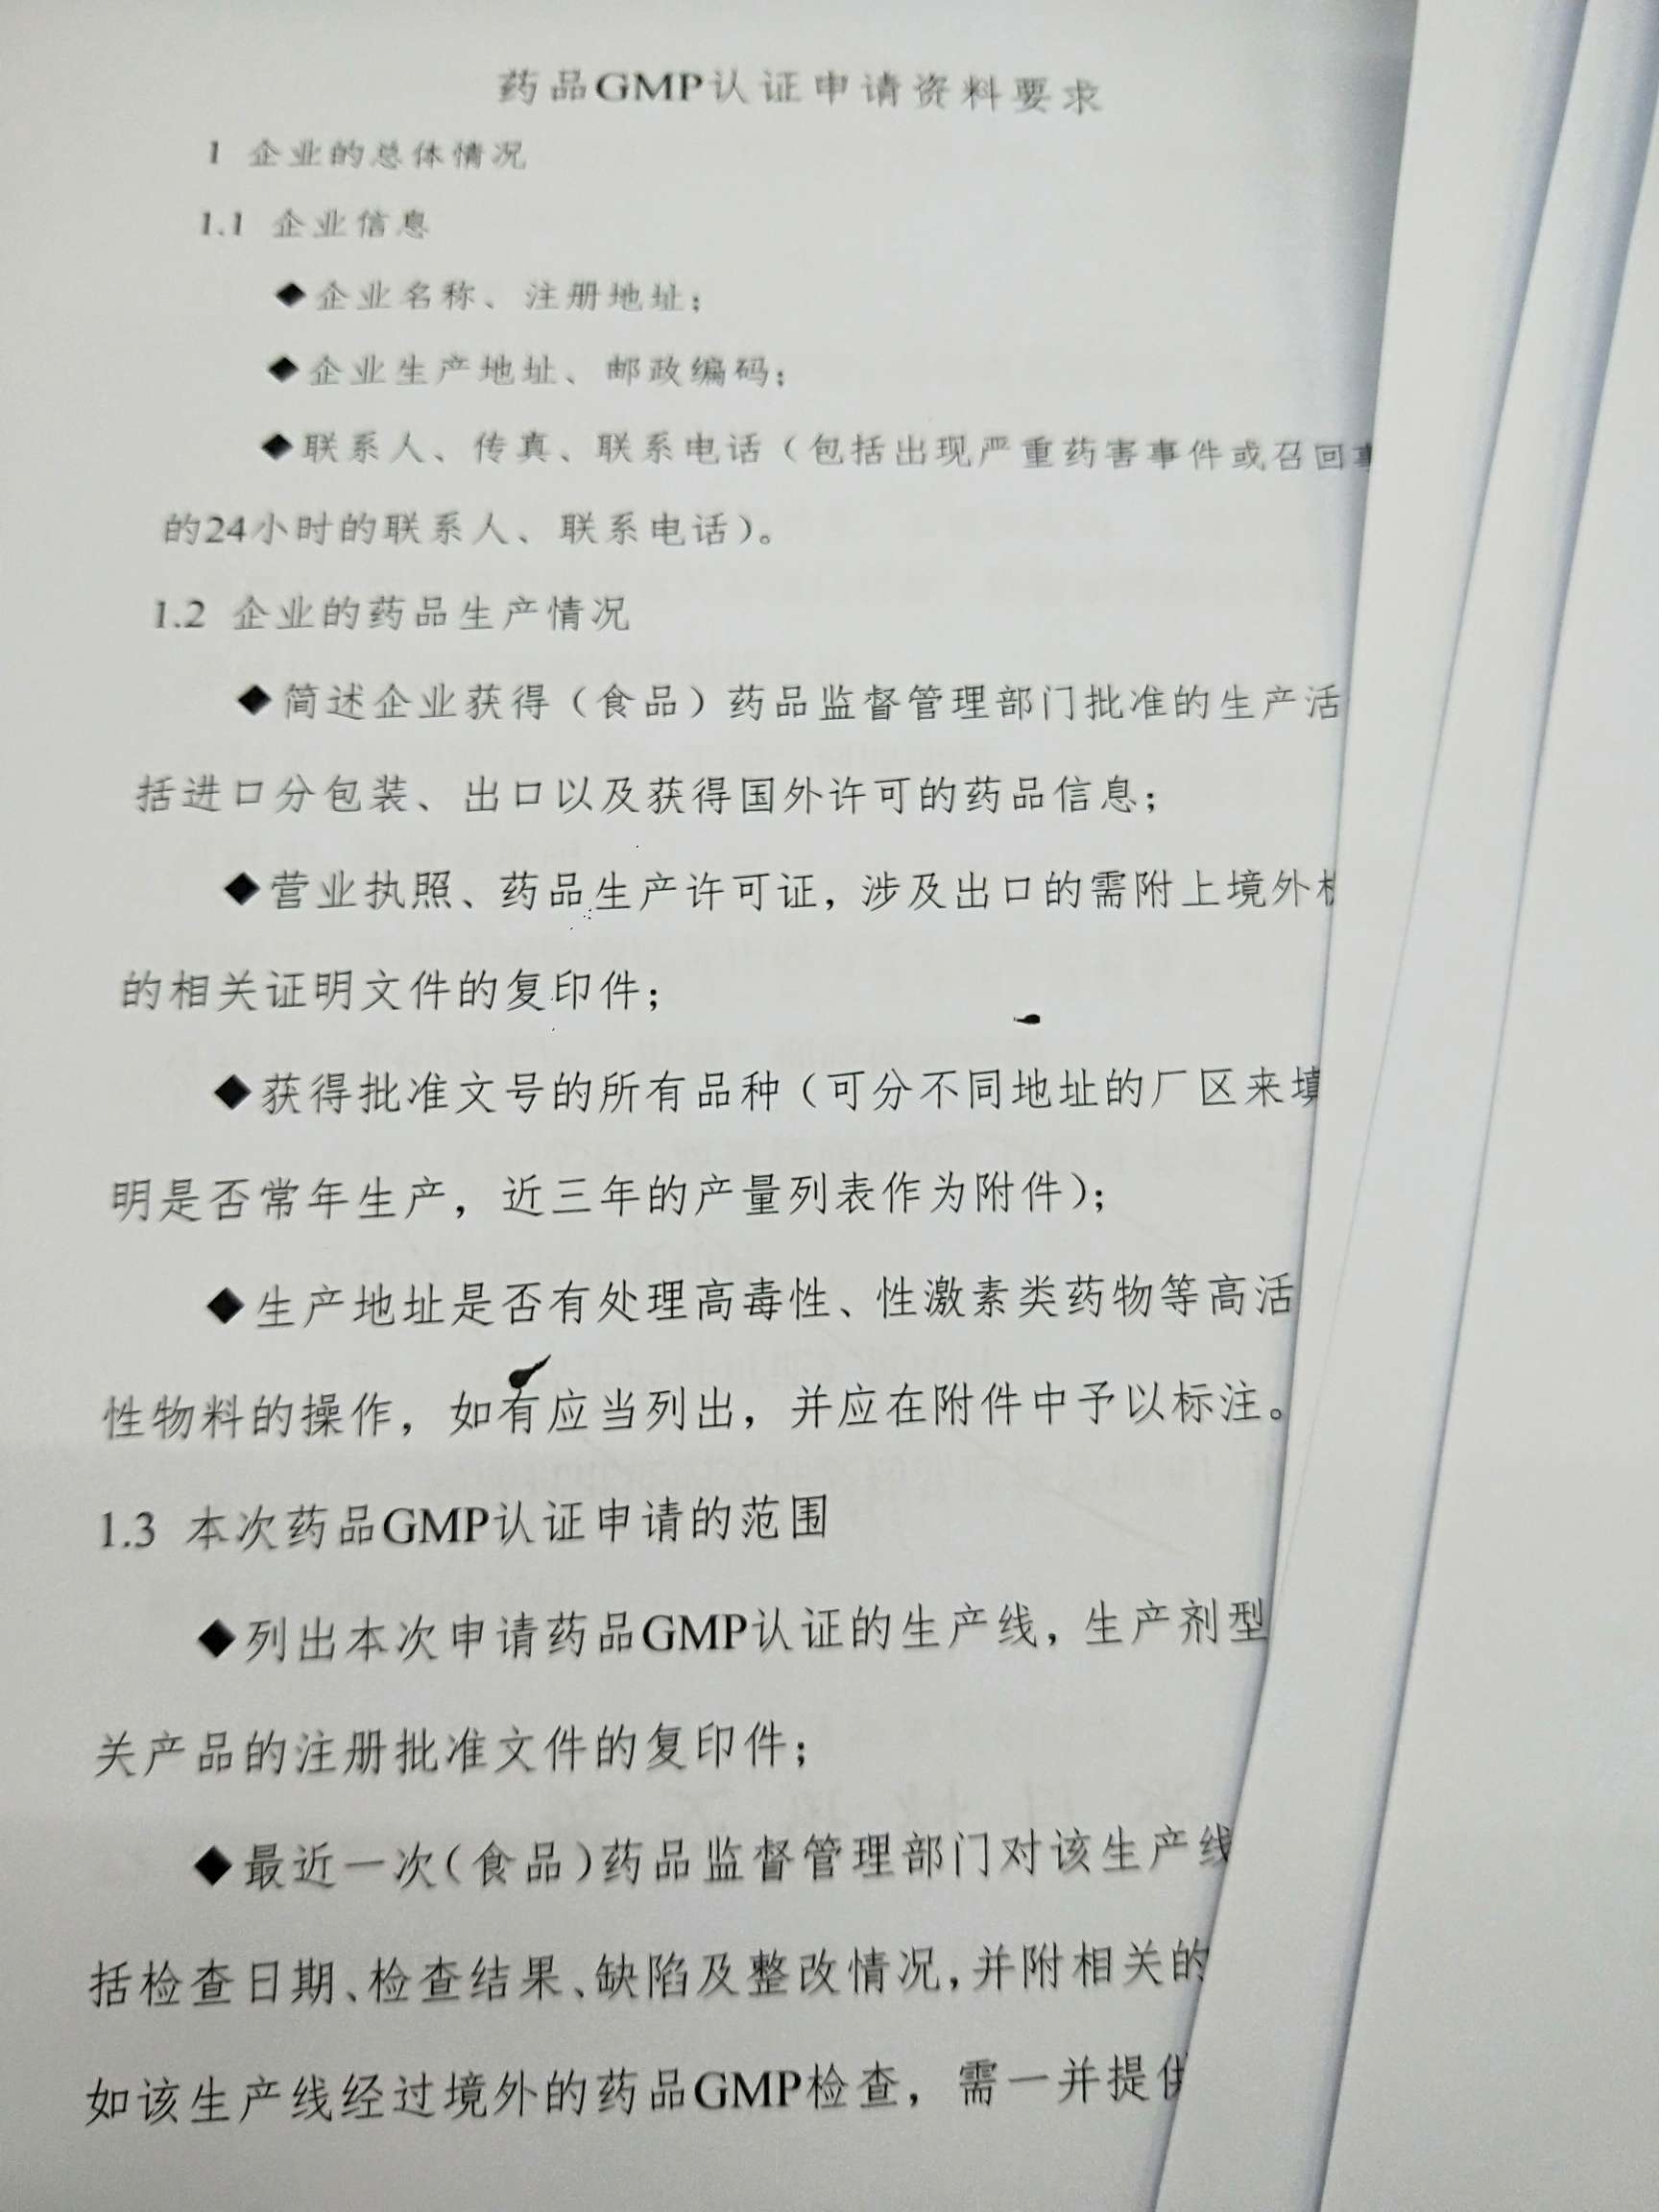 药品GMP认证申请资料要求
1 企业的总体情况
1.1 企业信息
◆企业名称、注册地址；
◆企业生产地址、邮政编码；
◆联系人、传真、联系电话（包括出现严重药害事件或召回事
的24小时的联系人、联系电话）。
1.2 企业的药品生产情况
◆简述企业获得（食品）药品监督管理部门批准的生产活
括进口分包装、出口以及获得国外许可的药品信息；
◆营业执照、药品生产许可证，涉及出口的需附上境外
的相关证明文件的复印件；
◆获得批准文号的所有品种（可分不同地址的厂区来填
明是否常年生产，近三年的产量列表作为附件）；
◆生产地址是否有处理高毒性、性激素类药物等高活
性物料的操作，如有应当列出，并应在附件中予以标注。
1.3 本次药品GMP认证申请的范围
◆列出本次申请药品GMP认证的生产线，生产剂型
关产品的注册批准文件的复印件；
◆最近一次（食品）药品监督管理部门对该生产线
括检查日期、检查结果、缺陷及整改情况，并附相关的
如该生产线经过境外的药品GMP检查，需一并提供